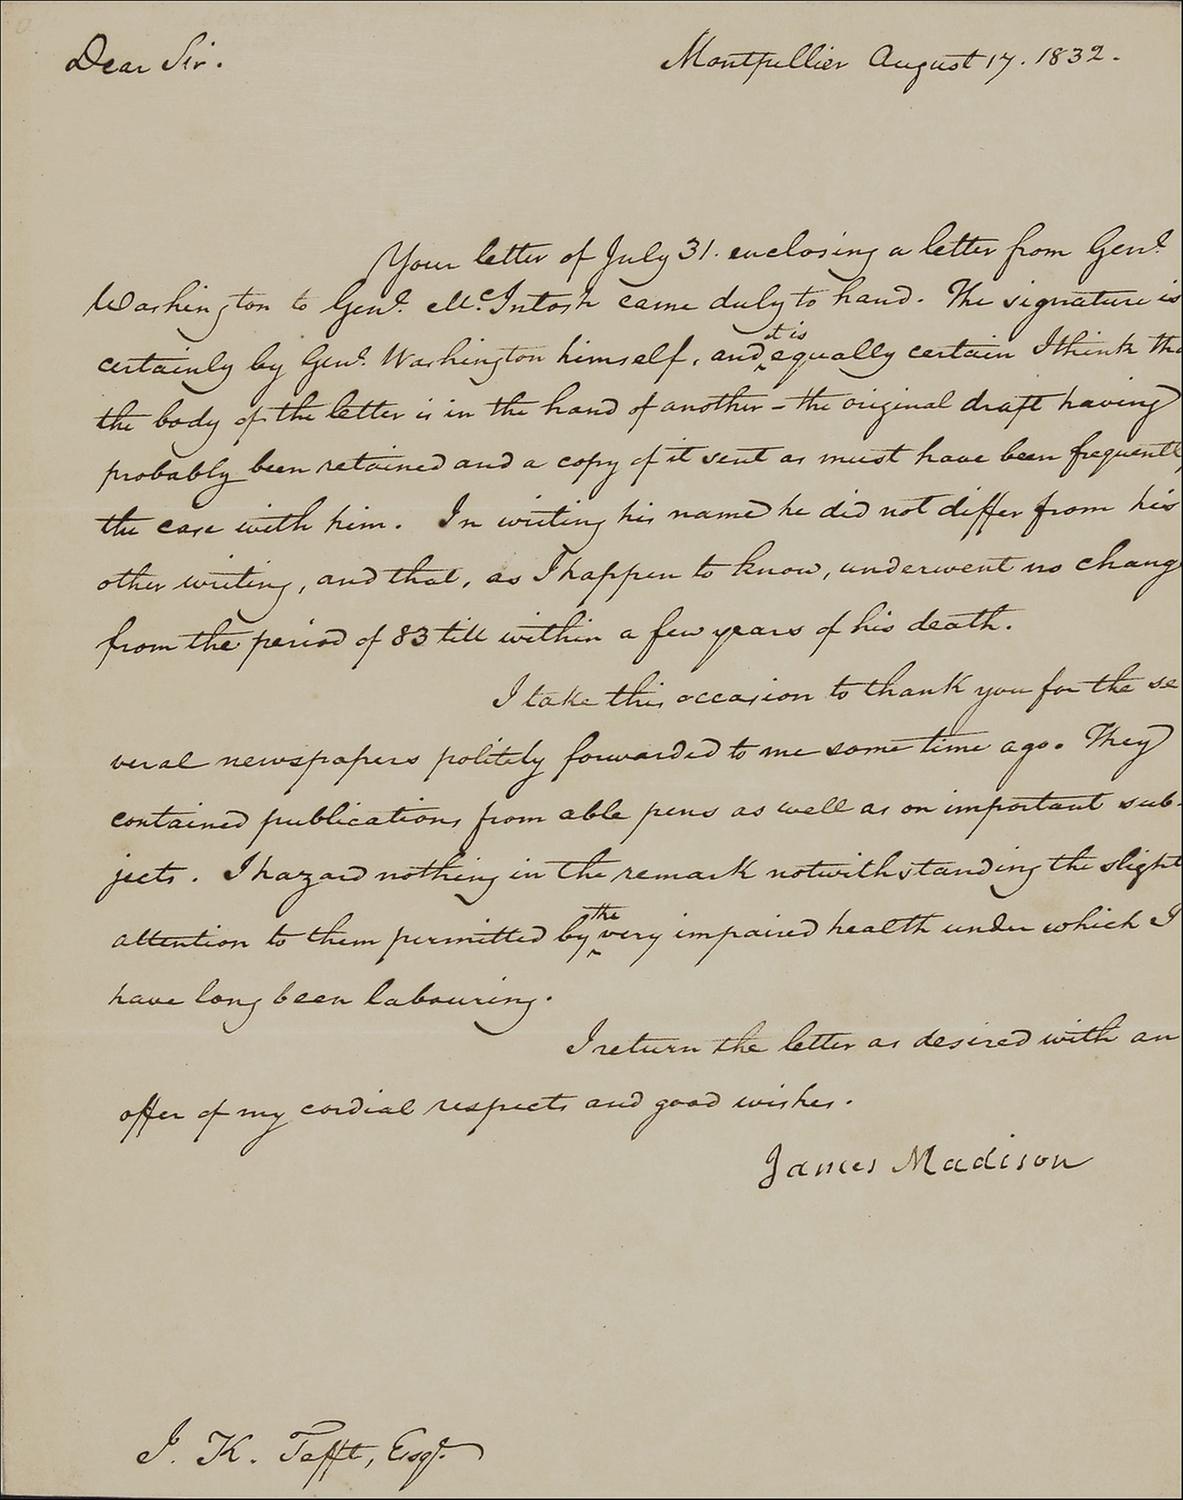 Dear Sir. Montpellier August 17. 1832.
Your letter of July 31. enclosing a letter from Genl.
Washington to Genl. McIntosh came duly to hand. The signature is
it is
certainly by Genl. Washington himself, and equally certain I think tha
the body of the letter is in the hand of another - the original draft having
probably been retained and a copy of it sent as must have been frequently
the case with him. In writing his name he did not differ from his
other writing, and that, as I happen to know, underwent no chang
from the period of 83 till within a few years of his death.
I take this occasion to thank you for the se
veral newspapers politely forwarded to me some time ago. They
contained publications from able pens as well as on important sub-
jects. I hazard nothing in the remark notwithstanding the slight
the
attention to them permitted by very impaired health under which I
have long been labouring.
I return the letter as desired with an
offer of my cordial respects and good wishes.
James Madison
J. K. Tefft, Esqr.